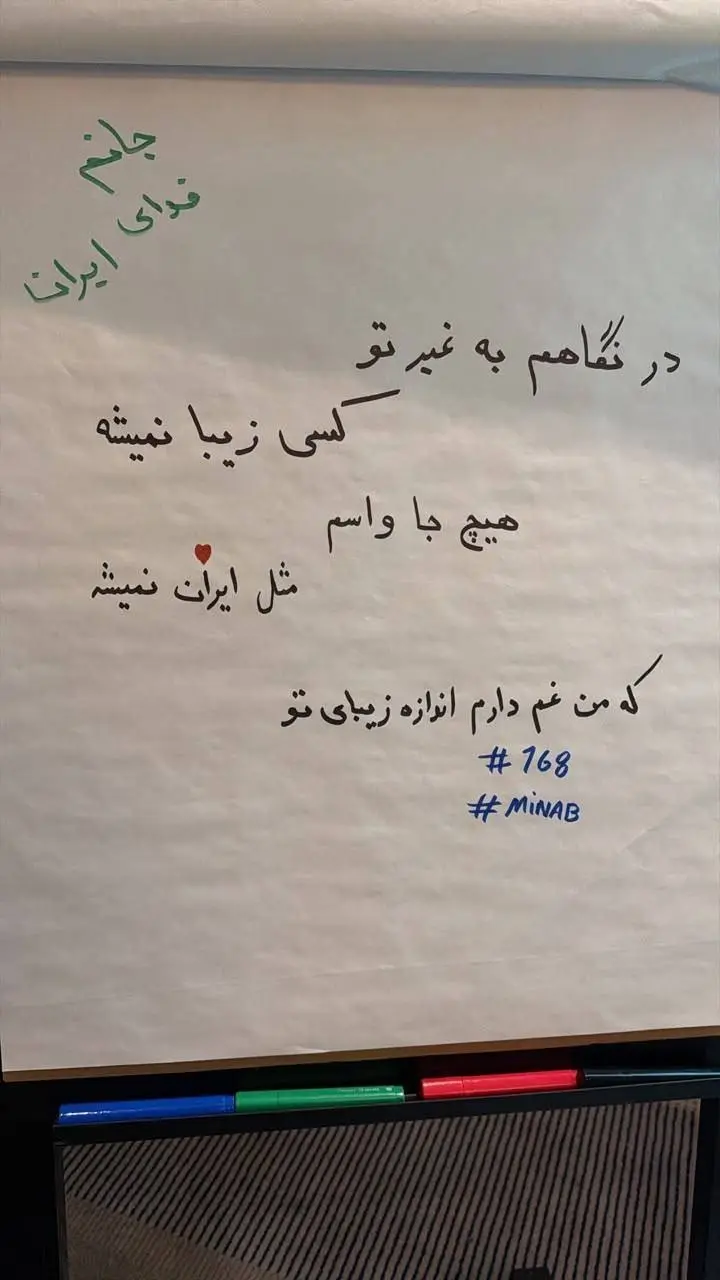 جانم
فدای
ایران
در نگاهم به غیر تو
کسی زیبا نمیشه
هیچ جا واسم
مثل ایران نمیشه
که من غم دارم اندازه زیبای تو
#168
#MiNAB